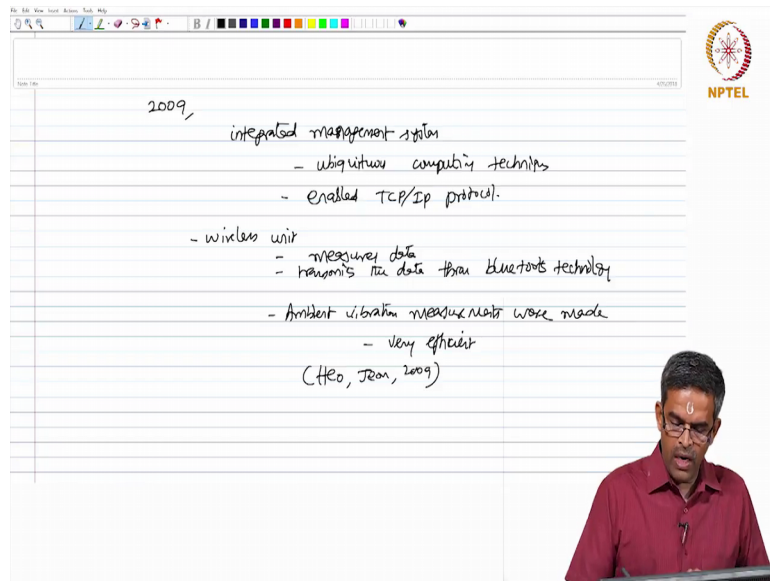 File Edit View Insert Actions Tools Help
B I
Note Title
4/20/2018
NPTEL
2009,
integrated management system
- ubiquitous computing techniques
- enabled TCP/Ip protocol.
- wireless unit
- measures data
- transmits the data through bluetooth technology
- Ambient vibration measurements were made
- very efficient
(Heo, Jeon, 2009)